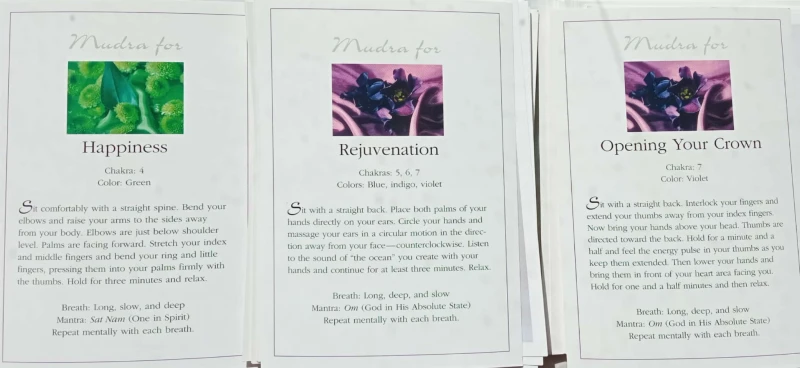 Mudra for
Happiness
Chakra: 4
Color: Green
Sit comfortably with a straight spine. Bend your
elbows and raise your arms to the sides away
from your body. Elbows are just below shoulder
level. Palms are facing forward. Stretch your index
and middle fingers and bend your ring and little
fingers, pressing them into your palms firmly with
the thumbs. Hold for three minutes and relax.
Breath: Long, slow, and deep
Mantra: Sat Nam (One in Spirit)
Repeat mentally with each breath.
Mudra for
Rejuvenation
Chakras: 5, 6, 7
Colors: Blue, indigo, violet
Sit with a straight back. Place both palms of your
hands directly on your ears. Circle your hands and
massage your ears in a circular motion in the direc-
tion away from your face—counterclockwise. Listen
to the sound of “the ocean” you create with your
hands and continue for at least three minutes. Relax.
Breath: Long, deep, and slow
Mantra: Om (God in His Absolute State)
Repeat mentally with each breath.
Mudra for
Opening Your Crown
Chakra: 7
Color: Violet
Sit with a straight back. Interlock your fingers and
extend your thumbs away from your index fingers.
Now bring your hands above your head. Thumbs are
directed toward the back. Hold for a minute and a
half and feel the energy pulse in your thumbs as you
keep them extended. Then lower your hands and
bring them in front of your heart area facing you.
Hold for one and a half minutes and then relax.
Breath: Long, deep, and slow
Mantra: Om (God in His Absolute State)
Repeat mentally with each breath.